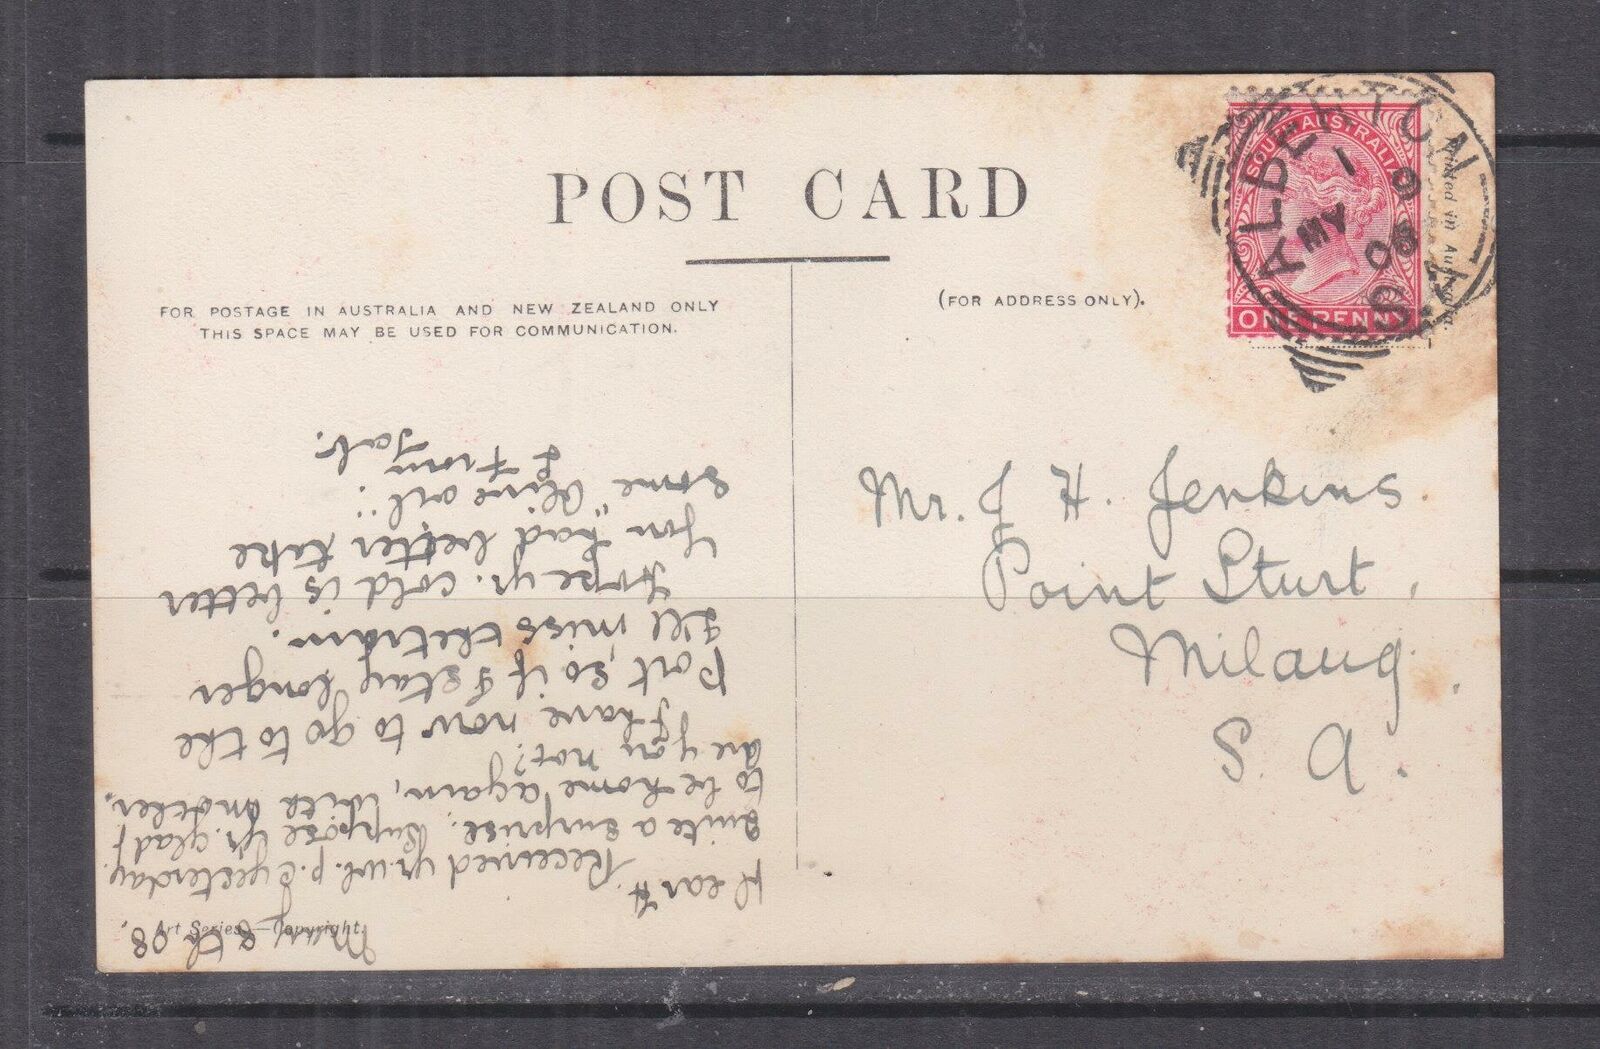 POST CARD
FOR POSTAGE IN AUSTRALIA AND NEW ZEALAND ONLY
THIS SPACE MAY BE USED FOR COMMUNICATION.
(FOR ADDRESS ONLY).
Printed in Australia.
SOUTH AUSTRALIA
ONE PENNY
ALBERTON
MY
08
S.A
Mr. J H. Jenkins.
Point Sturt,
Milang.
S. A.
Art Series.—Copyright.
May 8th 08.
Dear H.
Received yr. wl. p.c yesterday.
Quite a surprise. Suppose yr. glad
to be home again, with another.
are you not?
I have now to go to the
Port, so if I stay longer
I'll miss the train.
Hope yr. cold is better
You "had better take
some "Olive oil".
From